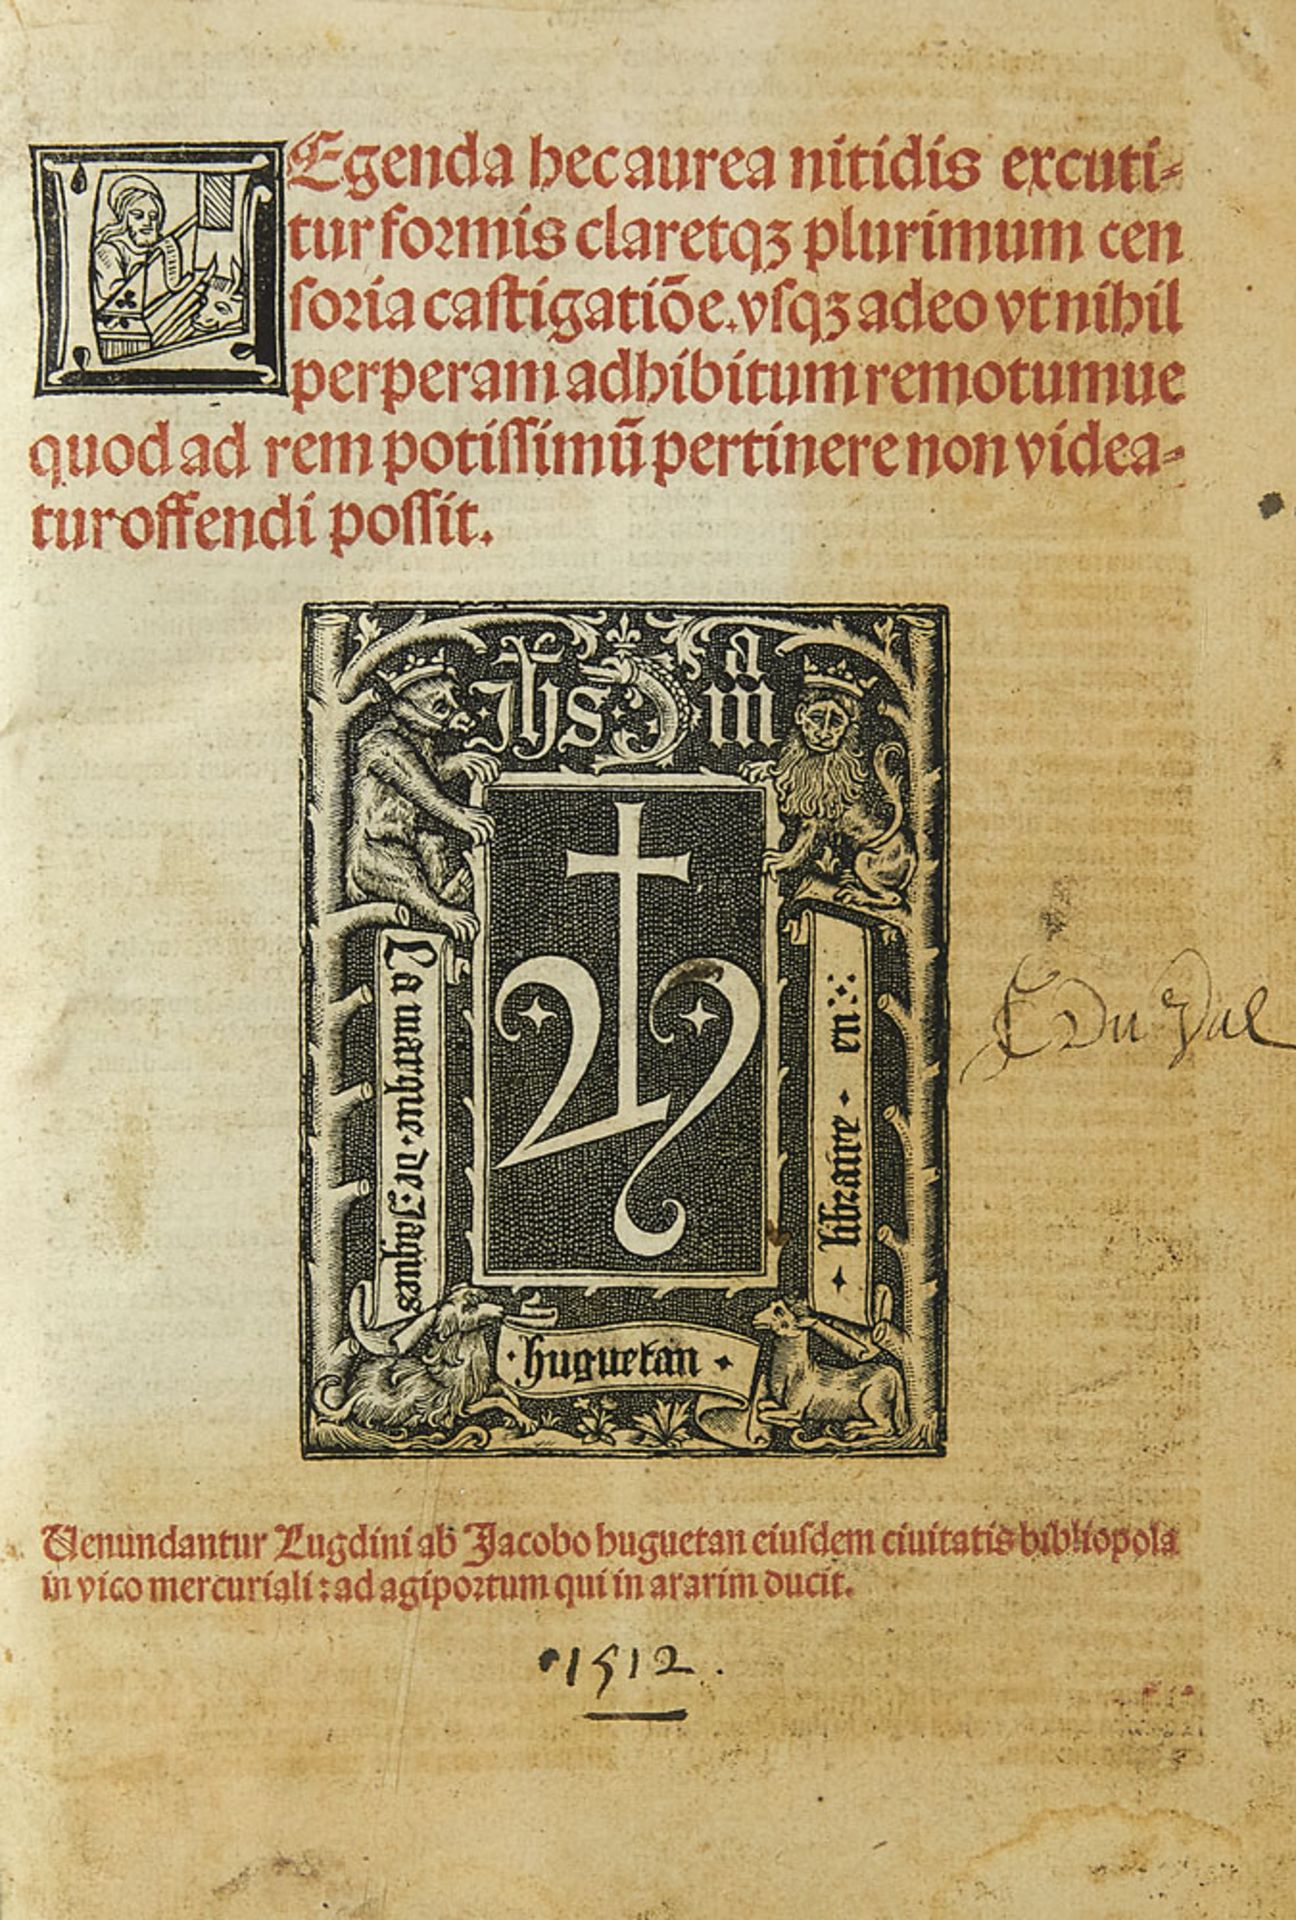 LEgenda hec aurea nitidis excuti-
tur formis claretqꝫ plurimum cen
soria castigatiõe. vsqꝫ adeo vt nihil
perperam adhibitum remotumue
quod ad rem potissimũ pertinere non videa-
tur offendi possit.
Jhs
m
a
La marque · de · Jaques
huguetan
libraire · en
C Du Val
Venundantur Lugdini ab Jacobo huguetan eiusdem ciuitatis bibliopola
in vico mercuriali : ad agiportum qui in ararim ducit.
·1512.